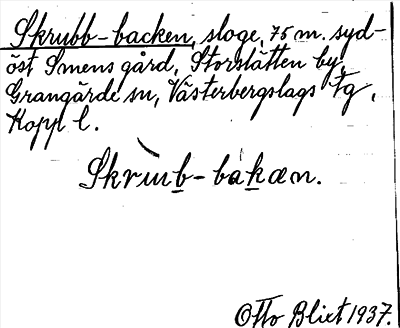 Skrubb-backen, sloge, 75 m. syd-
öst Smens gård, Storslätten by,
Grangärde sn, Västerbergslags tg,
Kopp l.
Skrub-bakæn.
Otto Blixt 1937.